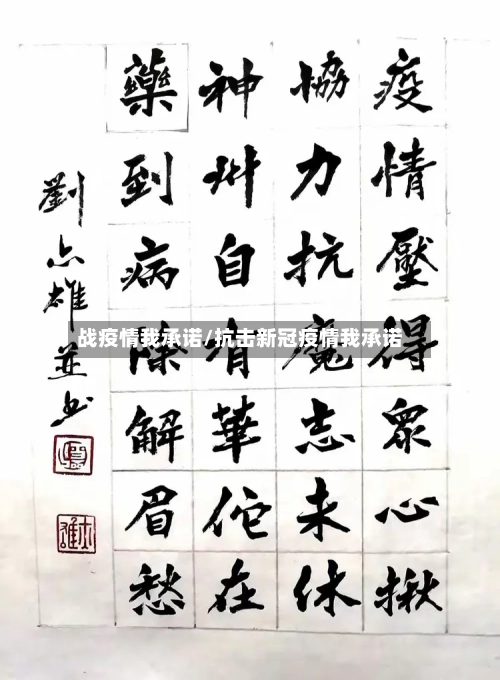 疫情壓得眾心揪
協力抗魔志未休
神州自有華佗在
藥到病除解眉愁
劉志雄並书
战疫情我承诺/抗击新冠疫情我承诺